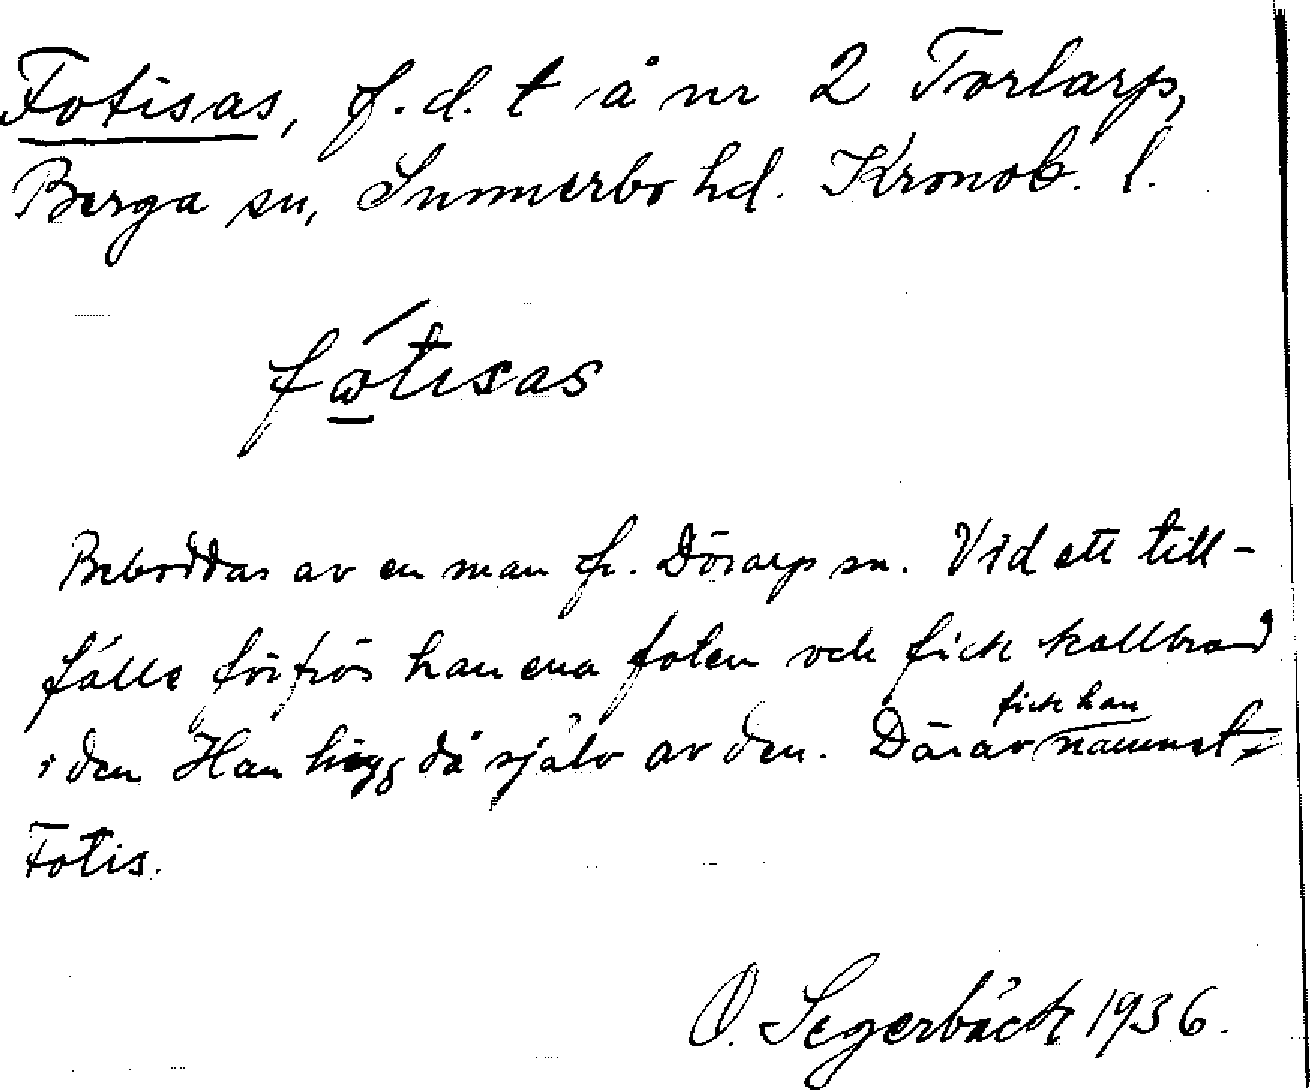 Fotisas, f.d. t å nr 2 Torlarp,
Berga sn, Sunnerbo hd. Kronob. l.
fátisas
Beboddas av en man fr. Dörarp sn. Vid ett till-
fälle förfrös han ena foten och fick kallbrand
i den Han högg då själv av den. Därav fick han namnet
Fotis.
O. Segerbäck 1936.